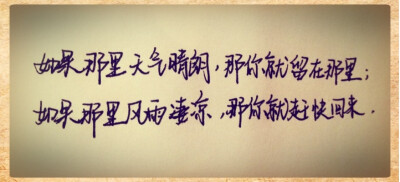 如果那里天气晴朗，那你就留在那里；
如果那里风雨凄凉，那你就赶快回来.